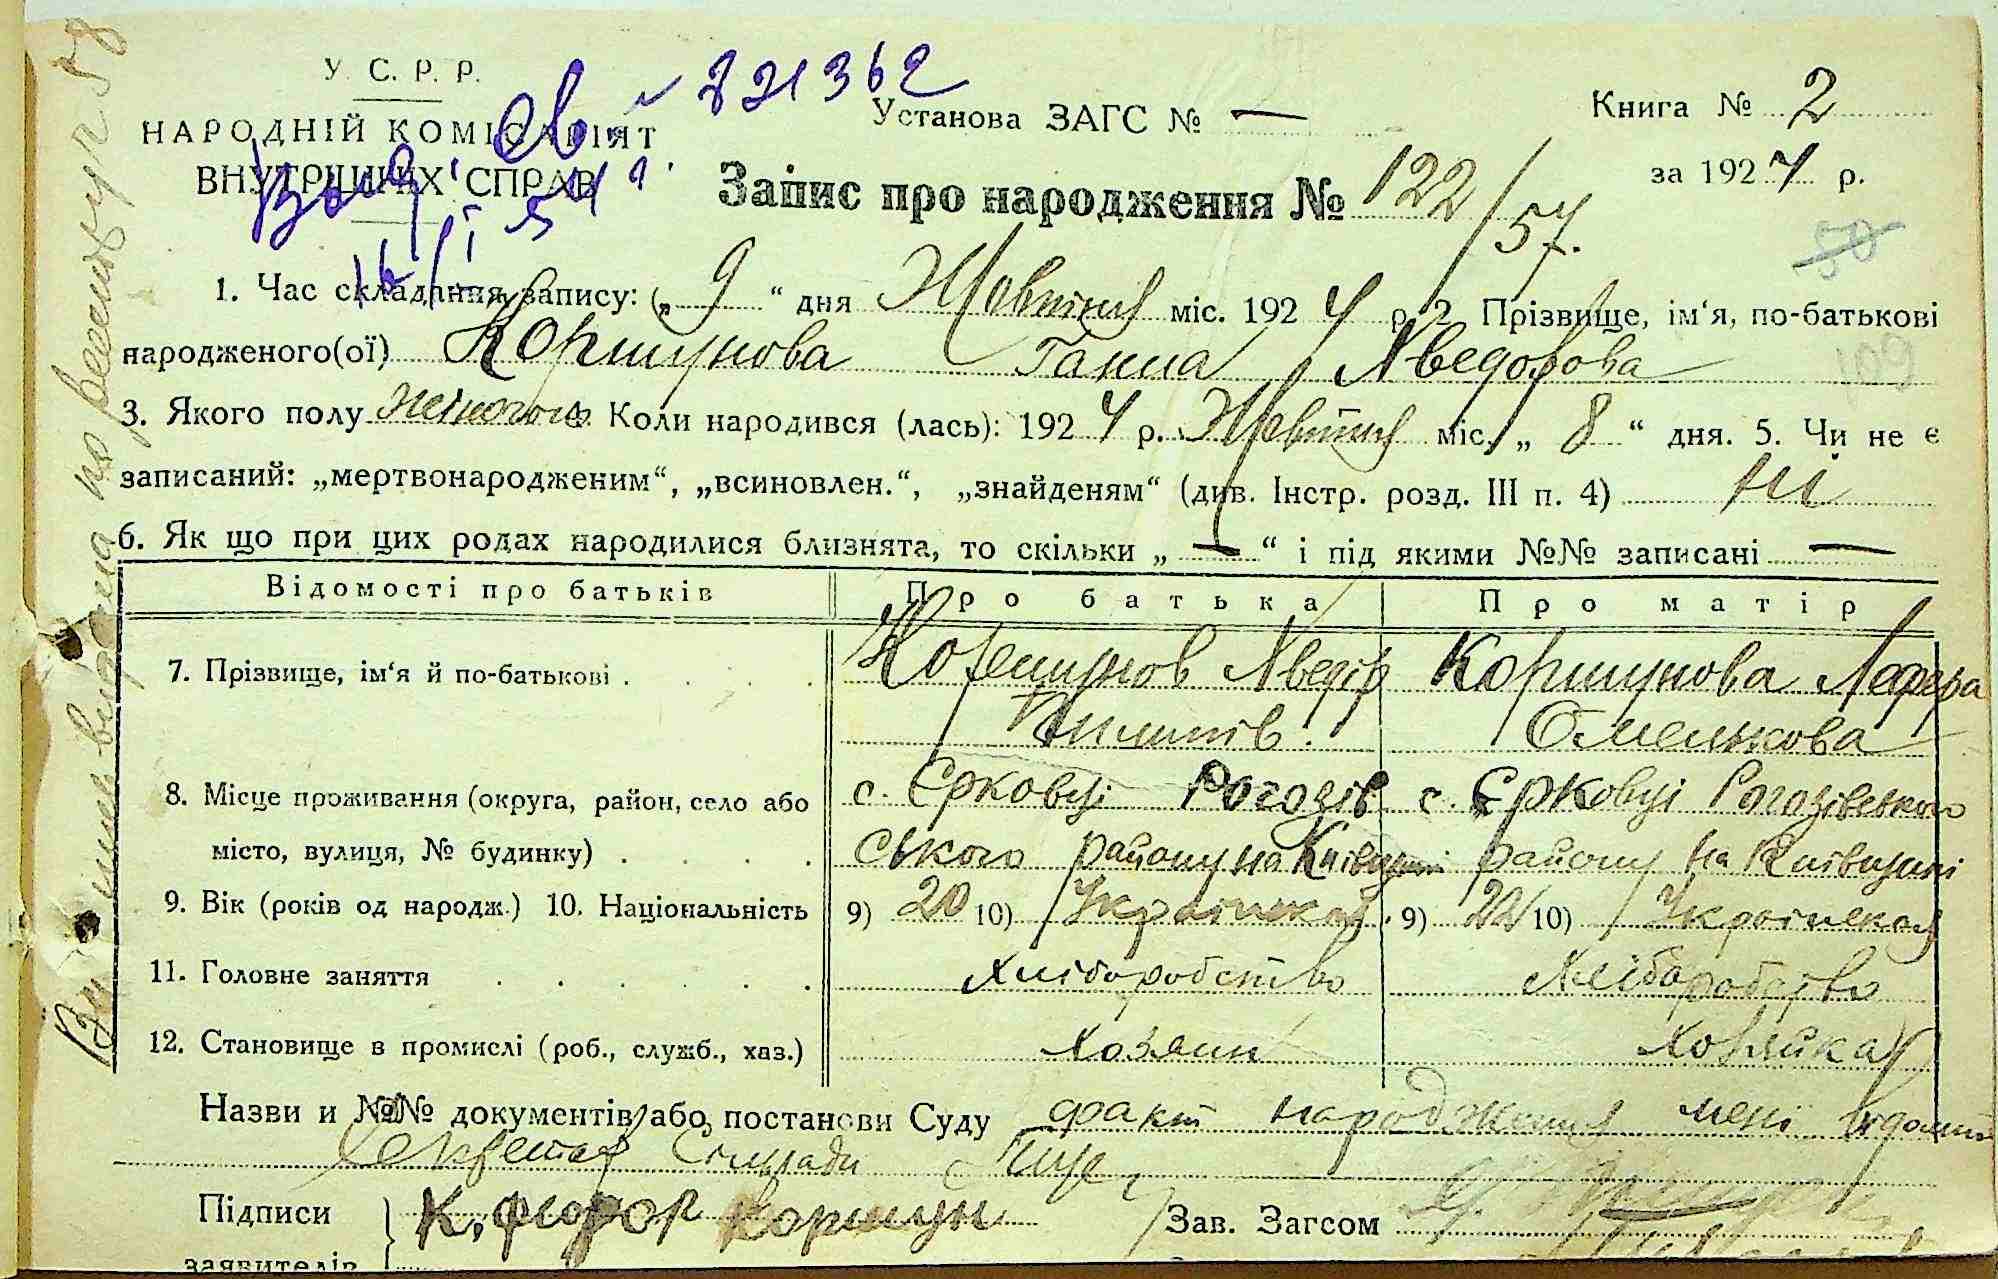 У. С. Р. Р.
НАРОДНІЙ КОМІСАРІЯТ
ВНУТРІШНІХ СПРАВ
Св. № 221362
Установа ЗАГС № —
Книга № 2
за 1924 р.
Запис про народження № 122/57.
50
109
1. Час складання запису: „ 9 “ дня Жовтня міс. 1924 р. 2. Прізвище, ім‘я, по-батькові
народженого(ої) Коршунова Ганна Хведорова
3. Якого полу жіночого 4. Коли народився (лась): 1924 р. Жовтня міс. „ 8 “ дня. 5. Чи не є
записаний: „мертвонародженим“, „всиновлен.“, „знайденям“ (див. Інстр. розд. III п. 4) ні
6. Як що при цих родах народилися близнята, то скільки „ — “ і під якими №№ записані —
Відомості про батьків Про батька Про матір
7. Прізвище, ім‘я й по-батькові . . . . Коршунов Хведір Коршунова
Пилипів. Омелькова
8. Місце проживання (округа, район, село або с. Єрковці Рогозів с. Єрковці Рогозівського
місто, вулиця, № будинку) . . . . ського району на Київщині району на Київщині
9. Вік (років од народж.) 10. Національність 9) 20 10) Українська 9) 22 10) Українська
11. Головне заняття . . . . . . Хліборобство Хліборобство
12. Становище в промислі (роб., служб., хаз.) Хозяин Хозяйка
Назви и №№ документів або постанови Суду факт народження мені відомий
Секретар Сільради
Підписи К. Федор Коршун Зав. Загсом
заявителів